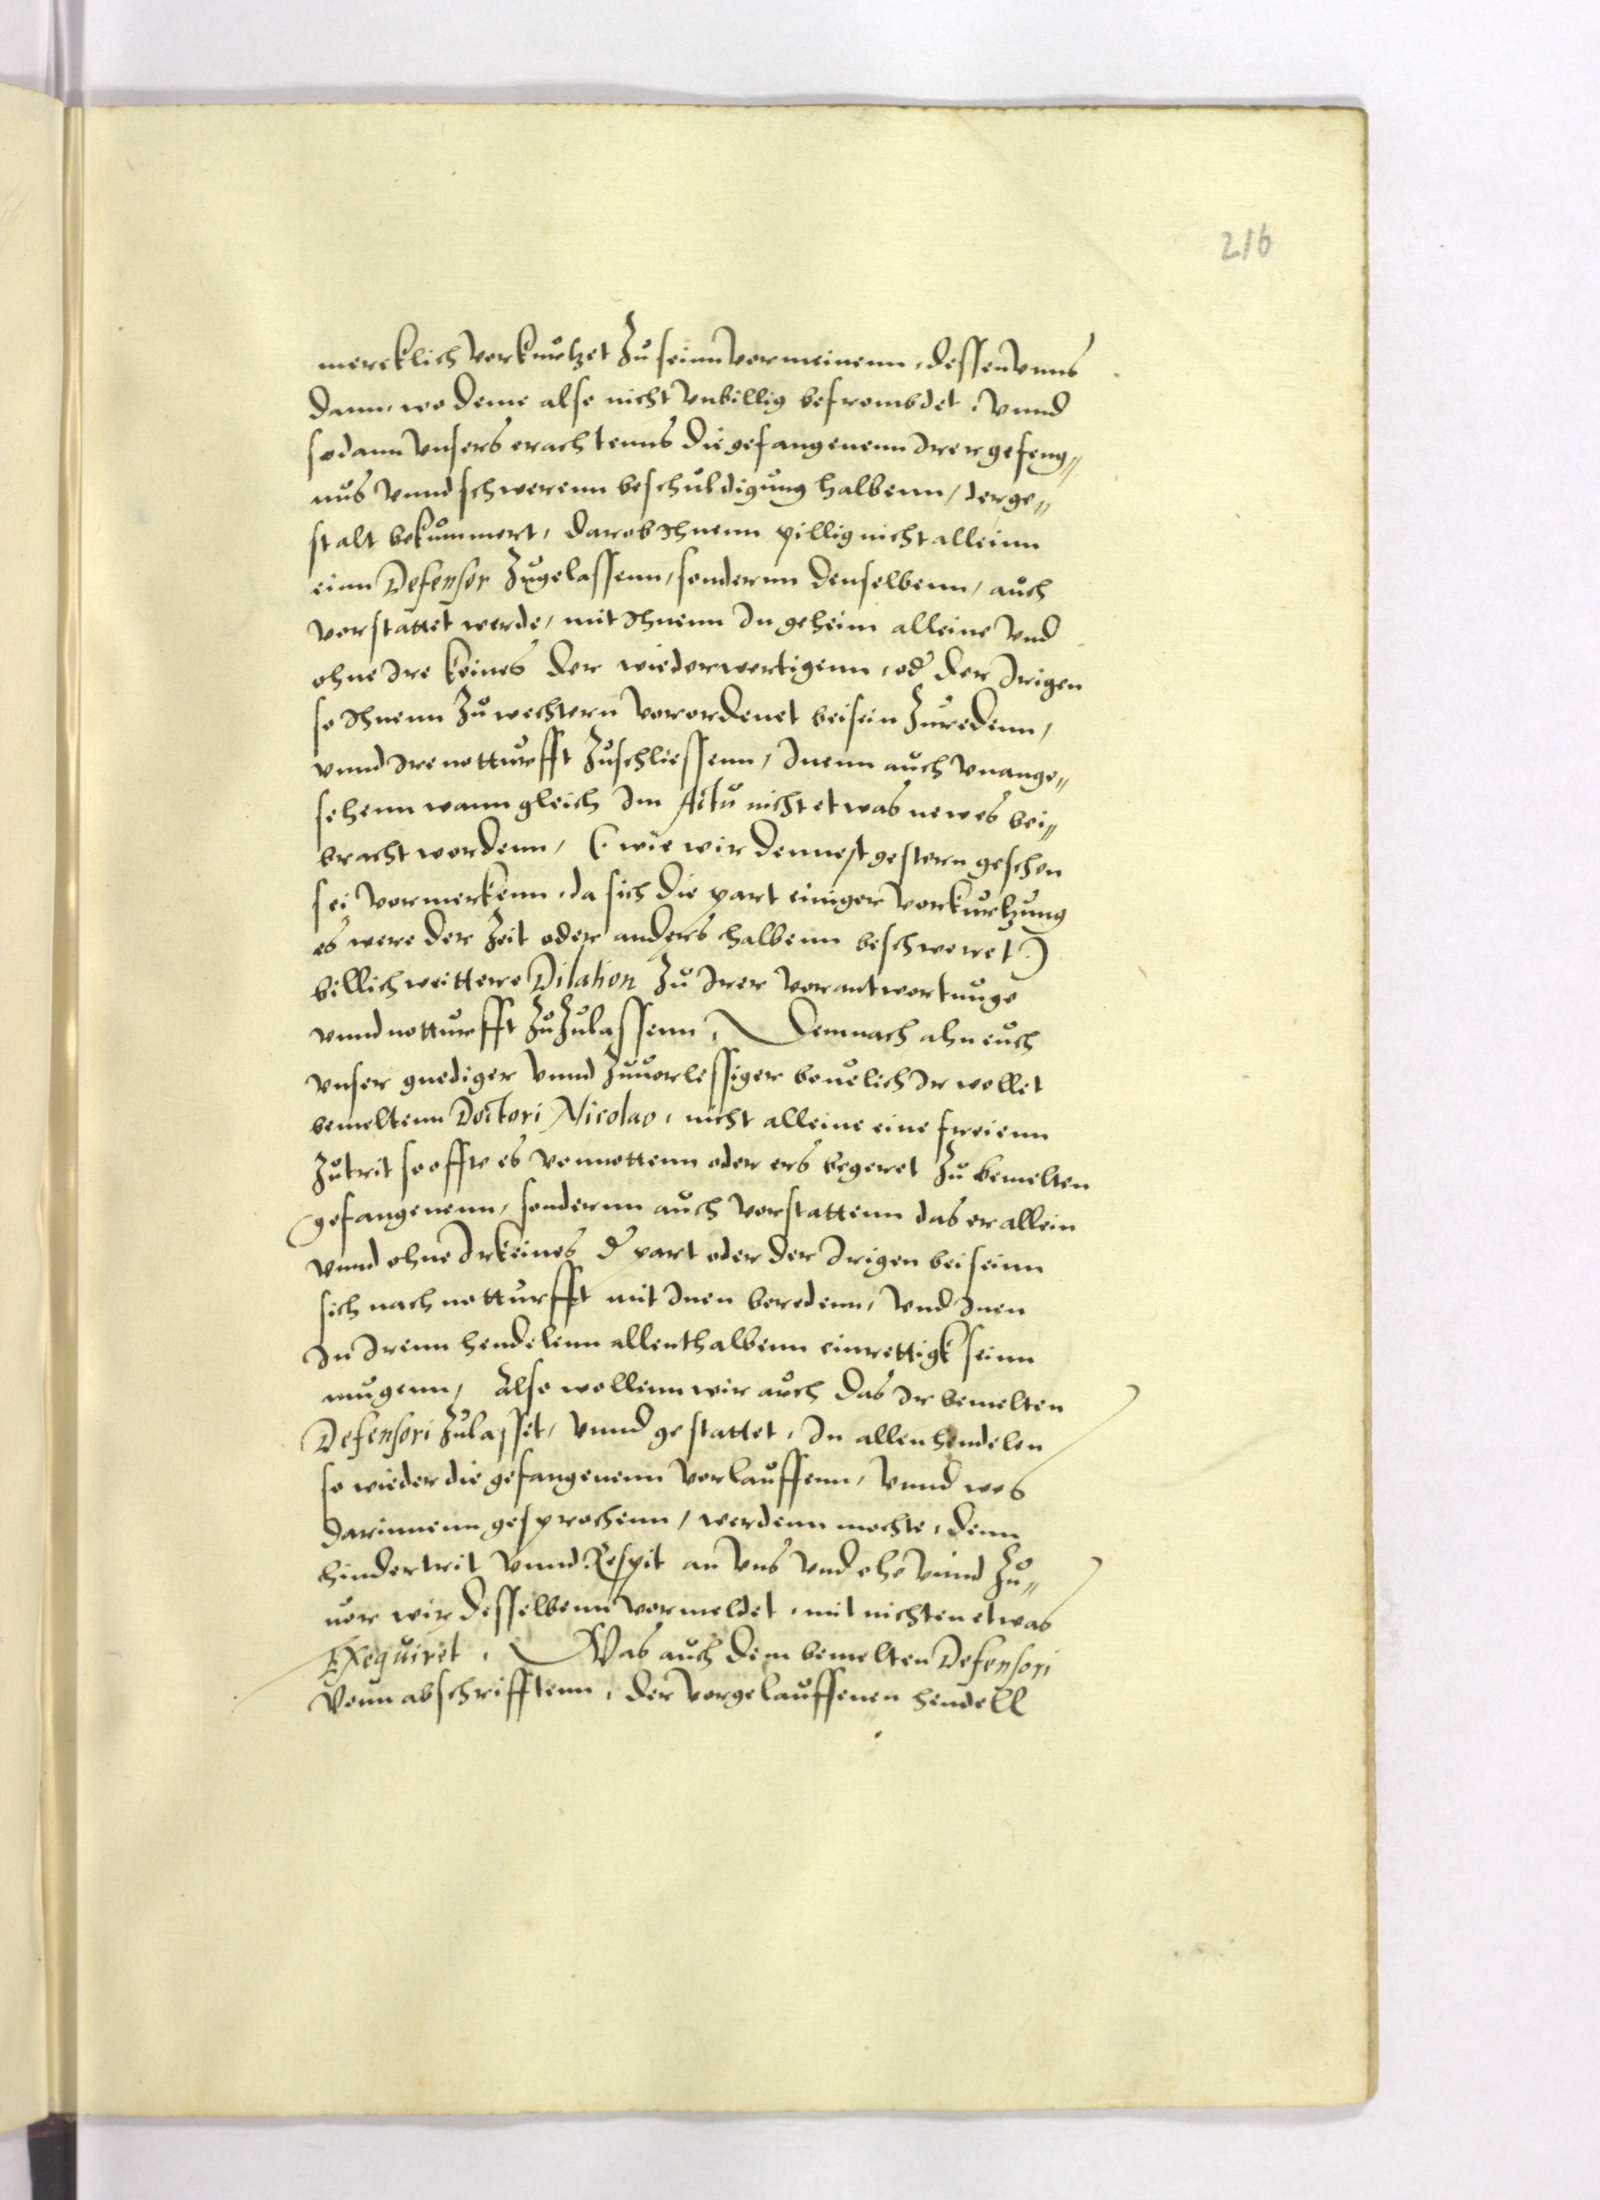 216
mercklich vorkurtzet zu seinn vormeinenn, dessen vnns
dann, wo deme also nicht vnbillig befrombdet, vnnd
sodann vnsers erachtenns die gefangenenn irer gefeng„
nus vnnd schwerenn beschuldigung halbenn, derge„
stalt bekummert, darob ihnenn pillig nicht alleinn
einn Defensor zugelassenn, sondernn denselbenn, auch
vorstattet werde, mit ihnenn in geheim alleine vnd
ohne ire keines der wiederwertigenn, od der irigen
so ihnenn zu wechtern vorordenet beisein zuredenn,
vnnd ire notturfft zuschliessenn, inenn auch vnange„
sehenn wann gleich im Actu nicht etwas newes bei„
bracht wordenn, (: wie wir dennest gestern geschen
sei vormerkenn, da sich die part einiger vorkurtzung
es were der zeit oder anders halbenn beschweret :)
billich weittere Dilation zu irer vorantwortunge
vnnd notturfft zuzulassenn, Demnach ahn euch
vnser gnediger vnnd zuuorlessiger beuelich ir wollet
bemeltenn Doctori Nicolao, nicht alleine eine freienn
zutrit so offte es vonnottenn oder ers begeret zu bemelten
gefangenenn, sondernn auch vorstattenn das er allein
vnnd ohne ir keines d part oder der irigen beiseinn
sich nach notturfft mit inen beredenn, vnd inen
in irenn hendelenn allenthalbenn einrettigk seinn
mugenn, Also wollenn wir auch das ir bemelten
Defensori zulasset, vnnd gestattet, in allen hendelen
so wieder die gefangenenn vorlauffenn, vnnd wes
darinnenn gesprochenn, werdenn mochte, denn
hindertrit vnnd Respit an vns vnd ehe vnnd zu„
uor wir desselbenn vormeldet, mit nichten etwas
Exequiret, Was auch dem bemelten Defensori
vonn abschrifftenn, der vorgelauffenen hendell